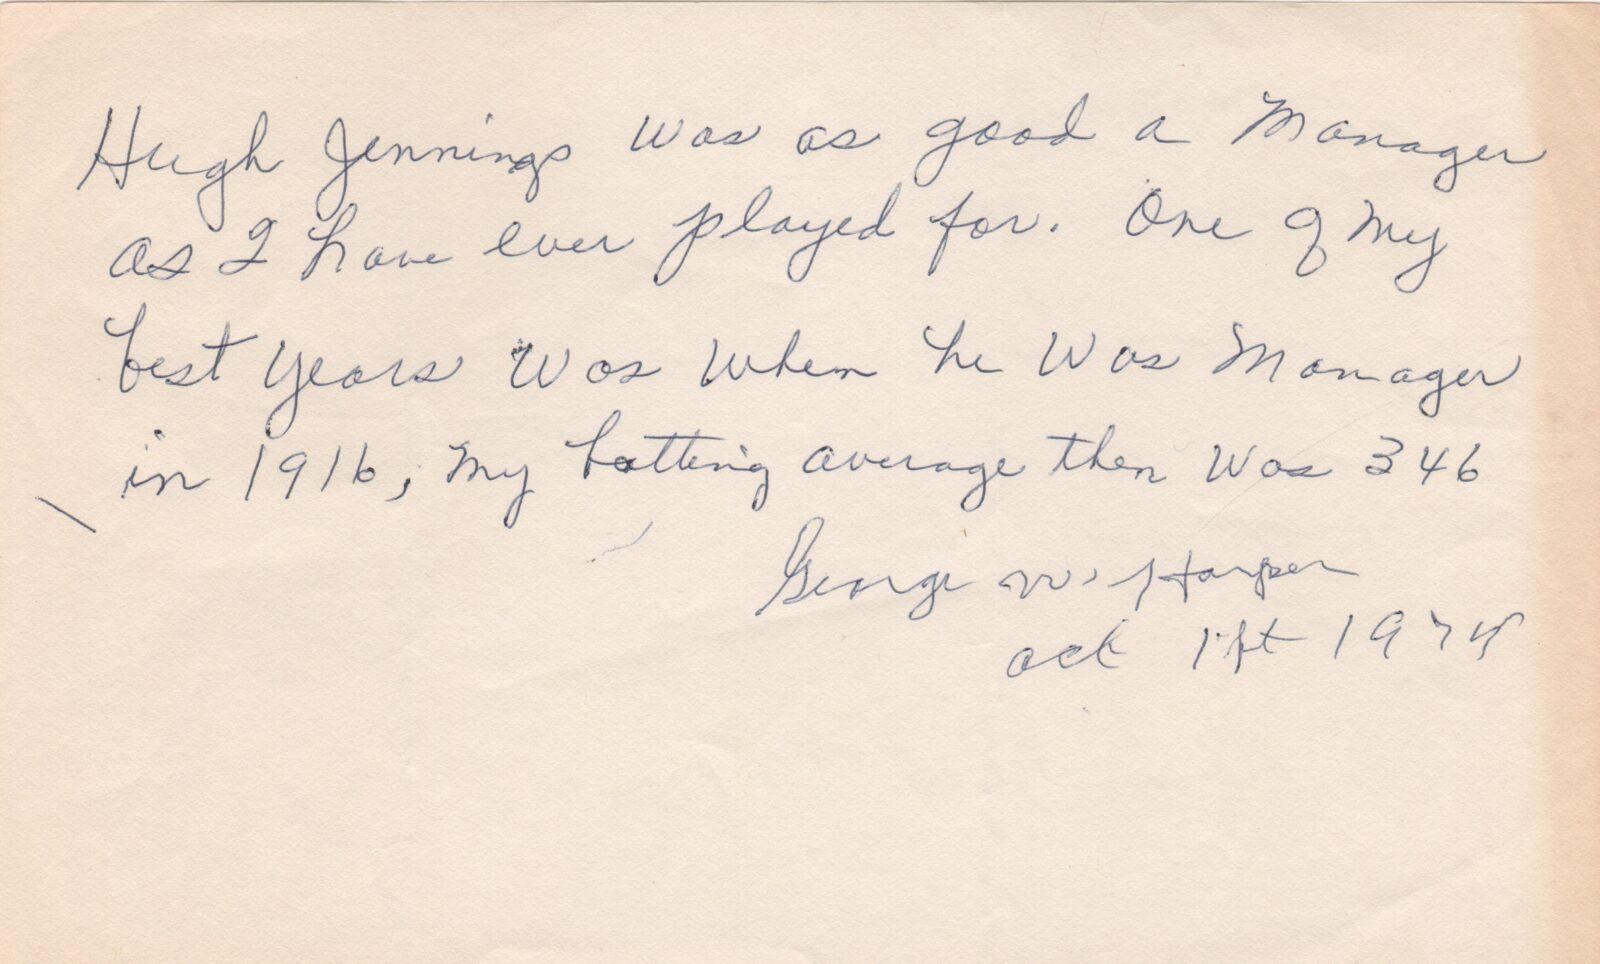 Hugh Jennings was as good a Manager
as I have ever played for. One of my
best years was when he was Manager
in 1916, my batting average then was 346
George W. Harper
Oct 1st 1974